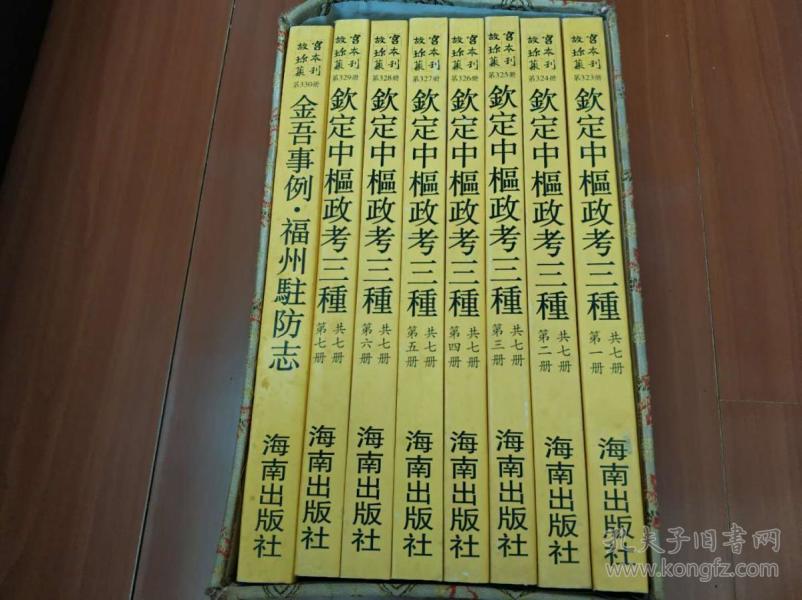 故宫
珍本
叢刊
第323册
欽定中樞政考三種
共七册
第一册
海南出版社
故宫
珍本
叢刊
第324册
欽定中樞政考三種
共七册
第二册
海南出版社
故宫
珍本
叢刊
第325册
欽定中樞政考三種
共七册
第三册
海南出版社
故宫
珍本
叢刊
第326册
欽定中樞政考三種
共七册
第四册
海南出版社
故宫
珍本
叢刊
第327册
欽定中樞政考三種
共七册
第五册
海南出版社
故宫
珍本
叢刊
第328册
欽定中樞政考三種
共七册
第六册
海南出版社
故宫
珍本
叢刊
第329册
欽定中樞政考三種
共七册
第七册
海南出版社
故宫
珍本
叢刊
第330册
金吾事例·福州駐防志
海南出版社
孔夫子旧书网
www.kongfz.com